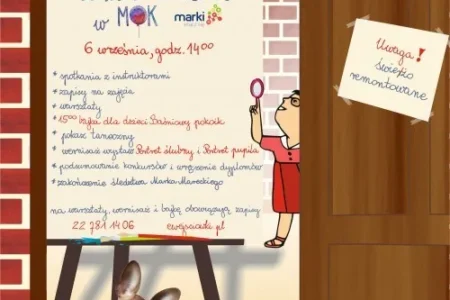 w MOK marki
6 września, godz. 1400
* spotkania z instruktorami
* zapisy na zajęcia
* warsztaty
* 1500 bajka dla dzieci Baśniowy pokoik
* pokaz taneczny
* wernisaż wystaw Portret ślubny i Portret pupila
* podsumowanie konkursów i wręczenie dyplomów
* zakończenie śledztwa Marka Mareckiego
na warsztaty, wernisaż i bajkę obowiązują zapisy
22 781 14 06
Uwaga!
świeżo
remontowane